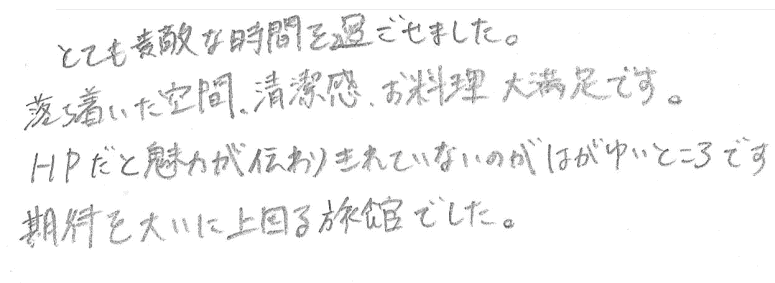 とても素敵な時間を過ごせました。
落ち着いた空間、清潔感、お料理 大満足です。
HPだと魅力が伝わりきれていないのがはがゆいところです
期待を大いに上回る旅館でした。